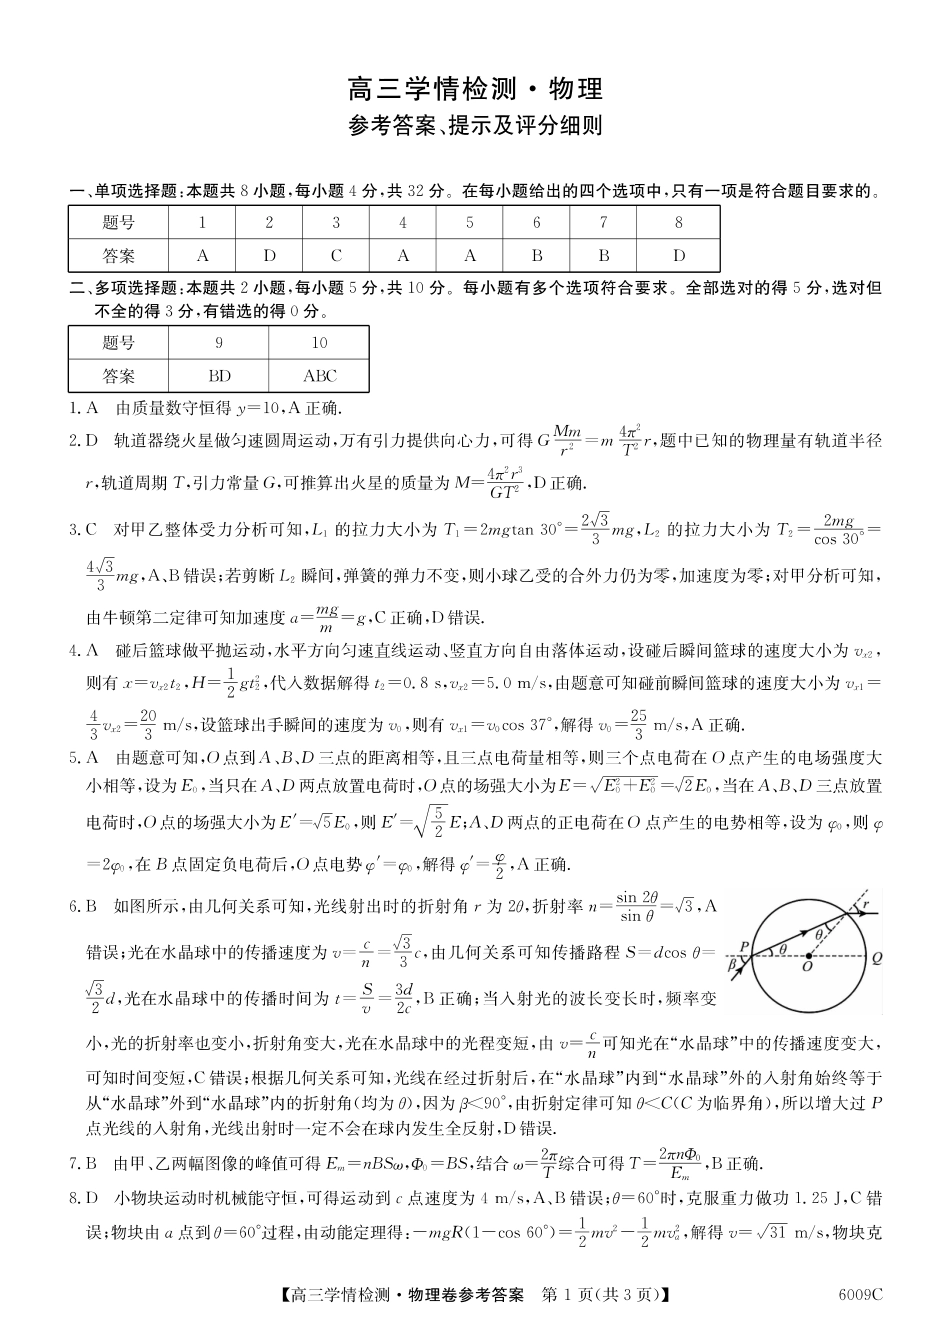 高三学情检测·物理
参考答案、提示及评分细则
一、单项选择题:本题共 8 小题,每小题 4 分,共 32 分。在每小题给出的四个选项中,只有一项是符合题目要求的。
题号 1 2 3 4 5 6 7 8
答案 A D C A A B B D
二、多项选择题:本题共 2 小题,每小题 5 分,共 10 分。每小题有多个选项符合要求。全部选对的得 5 分,选对但
不全的得 3 分,有错选的得 0 分。
题号 9 10
答案 BD ABC
1. A 由质量数守恒得 y=10,A 正确.
2. D 轨道器绕火星做匀速圆周运动,万有引力提供向心力,可得 G\frac{Mm}{r²}=m\frac{4π²}{T²}r,题中已知的物理量有轨道半径
r,轨道周期 T,引力常量 G,可推算出火星的质量为 M=\frac{4π²r³}{GT²},D 正确.
3. C 对甲乙整体受力分析可知,L₁ 的拉力大小为 T₁=2mgtan 30°=\frac{2√3}{3}mg,L₂ 的拉力大小为 T₂=\frac{2mg}{cos 30°}=
\frac{4√3}{3}mg,A、B 错误;若剪断 L₂ 瞬间,弹簧的弹力不变,则小球乙受的合外力仍为零,加速度为零;对甲分析可知,
由牛顿第二定律可知加速度 a=\frac{mg}{m}=g,C 正确,D 错误.
4. A 碰后篮球做平抛运动,水平方向匀速直线运动、竖直方向自由落体运动,设碰后瞬间篮球的速度大小为 v_{x2},
则有 x=v_{x2}t₂,H=\frac{1}{2}gt₂²,代入数据解得 t₂=0.8 s,v_{x2}=5.0 m/s,由题意可知碰前瞬间篮球的速度大小为 v_{x1}=
\frac{4}{3}v_{x2}=\frac{20}{3} m/s,设篮球出手瞬间的速度为 v₀,则有 v_{x1}=v₀cos 37°,解得 v₀=\frac{25}{3} m/s,A 正确.
5. A 由题意可知,O 点到 A、B、D 三点的距离相等,且三点电荷量相等,则三个点电荷在 O 点产生的电场强度大
小相等,设为 E₀,当只在 A、D 两点放置电荷时,O 点的场强大小为 E=\sqrt{E₀²+E₀²}=√2E₀,当在 A、B、D 三点放置
电荷时,O 点的场强大小为 E′=√5E₀,则 E′=\sqrt{\frac{5}{2}}E;A、D 两点的正电荷在 O 点产生的电势相等,设为 φ₀,则 φ
=2φ₀,在 B 点固定负电荷后,O 点电势 φ′=φ₀,解得 φ′=\frac{φ}{2},A 正确.
6. B 如图所示,由几何关系可知,光线射出时的折射角 r 为 2θ,折射率 n=\frac{sin 2θ}{sin θ}=√3,A
错误;光在水晶球中的传播速度为 v=\frac{c}{n}=\frac{√3}{3}c,由几何关系可知传播路程 S=dcos θ=
\frac{√3}{2}d,光在水晶球中的传播时间为 t=\frac{S}{v}=\frac{3d}{2c},B 正确;当入射光的波长变长时,频率变
P β θ θ r O Q
小,光的折射率也变小,折射角变大,光在水晶球中的光程变短,由 v=\frac{c}{n}可知光在“水晶球”中的传播速度变大,
可知时间变短,C 错误;根据几何关系可知,光线在经过折射后,在“水晶球”内到“水晶球”外的入射角始终等于
从“水晶球”外到“水晶球”内的折射角(均为 θ),因为 β<90°,由折射定律可知 θ<C(C 为临界角),所以增大过 P
点光线的入射角,光线出射时一定不会在球内发生全反射,D 错误.
7. B 由甲、乙两幅图像的峰值可得 E_m=nBSω,Φ₀=BS,结合 ω=\frac{2π}{T}综合可得 T=\frac{2πnΦ₀}{E_m},B 正确.
8. D 小物块运动时机械能守恒,可得运动到 c 点速度为 4 m/s,A、B 错误;θ=60°时,克服重力做功 1.25 J,C 错
误;物块由 a 点到 θ=60°过程,由动能定理得:−mgR(1−cos 60°)=\frac{1}{2}mv²−\frac{1}{2}mv_a²,解得 v=√31 m/s,物块克
【高三学情检测·物理卷参考答案 第 1 页(共 3 页)】 6009C